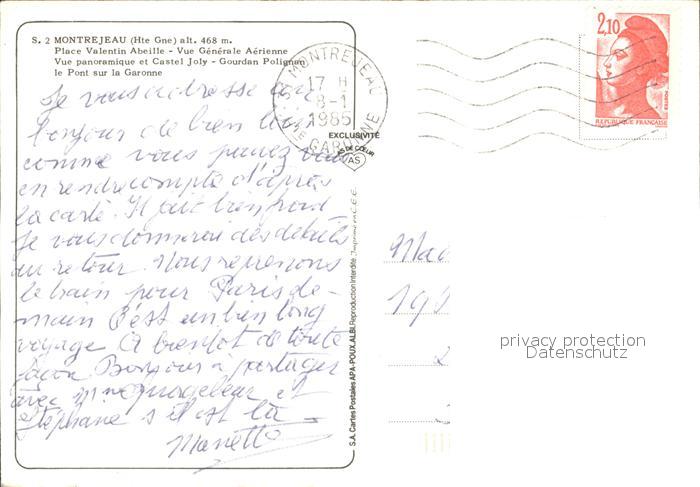 S. 2 MONTREJEAU (Hte Gne) alt. 468 m.
Place Valentin Abeille - Vue Générale Aérienne
Vue panoramique et Castel Joly - Gourdan Polignan
le Pont sur la Garonne
MONTREJEAU
17 H
8-1
1985
Hte GARONNE
2,10
POSTES
REPUBLIQUE FRANÇAISE
EXCLUSIVITÉ
AS DE CŒUR
AS
S.A. Cartes Postales APA-POUX, ALBI, Reproduction Interdite. Imprimé en C.E.E.
Je vous adresse un
bonjour de bien loin
comme vous pouvez vous
en rendre compte d'après
la carte. Il fait bien froid
Je vous donnerai des détails
au retour. Nous reprenons
le train pour Paris de-
main C'est un bien long
voyage A bientot de toute
façon Bonjour à partager
avec et
Stéphane s'il est là
Manette
Mad
19
2
3
privacy protection
Datenschutz